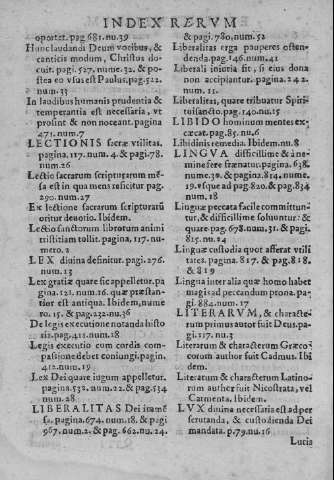 INDEX RERVM
oportet. pag 681. nu.39
Hunc laudandi Deum vocibus, &
canticis modum, Christus do-
cuit. pag. 527. nume. 32. & po-
stea eo vsus est Paulus. pag. 522.
num. 33
In laudibus humanis prudentia &
temperantia est necessaria, vt
prosint & non noceant. pagina
471. num. 7
LECTIONIS sacræ vtilitas.
pagina. 117. num. 4 & pag. 78.
num. 26
Lectio sacrarum scripturarum me-
sa est in qua mens reficitur pag.
290. num. 27
Ex lectione sacrarum scripturarū
oritur deuotio. Ibidem.
Lectio sanctorum librorum animi
tristitiam tollit. pagina, 117. nu-
mero. 2
LEX diuina definitur. pag. 276.
num. 13
Lex gratiæ quare sic appelletur. pa
gina. 121. num. 16. quæ præstan-
tior est antiqua. Ibidem, nume
ro. 15. & pag. 232. nu. 36
De legis executione notanda histo
ria. pag. 411. num. 18
Legis executio cum cordis com-
passione debet coniungi. pagin,
412. num. 19
Lex Dei quare iugum appelletur.
pagina. 532. num. 22. & pag. 534
num. 28
LIBERALITAS Dei imme-
sa. pagina. 674. num. 18. & pagi
967. num. 2. & pag. 662. nu. 24.
& pagi. 780. num. 52
Liberalitas erga pauperes osten-
denda. pag. 146. num. 41
Liberali iniuria fit, si eius dona
non accipiantur. pagina. 242.
num. 11.
Liberalitas, quare tribuatur Spiri-
tui sancto. pag. 140. nu. 15
LIBIDO hominum mentes ex-
cæcat. pag. 85. nu. 6
Libidinis remedia. Ibidem. nu. 8
LINGVA difficillime & à ne-
mine fere frænatur. pagina. 638.
nume. 30. & pagina. 814. nume.
19. vsque ad pag. 820. & pag. 834
num. 18
Linguæ peccata facile committun-
tur, & difficillime soluuntur: &
quare. pag. 678. num. 31. & pagi.
815. nu. 24
Linguæ custodia quot afferat vtili
tates. pagina. 817. & pag. 818.
& 819
Lingua inter alia quæ homo habet
magis ad peccandum prona. pa-
gi. 884. num. 17
LITERARVM, & characte-
rum primus autor fuit Deus. pa-
gi. 117. nu. 1
Literarum & characterum Græco-
corum author fuit Cadmus. Ibi
dem.
Literarum & characterum Latino-
rum author fuit Nicostrata, vel
Carmenta. Ibidem.
LVX diuina necessaria est ad per
scrutanda, & custodienda Dei
mandata. p. 79. nu. 16
Lucia